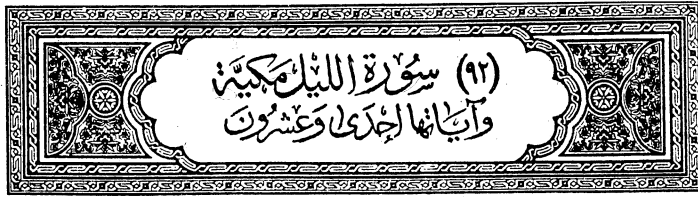 (٩٢) سُورَة اللَّيْل مَكيَّة
وَآيَاتهَا إِحْدَى وَعشرُونَ